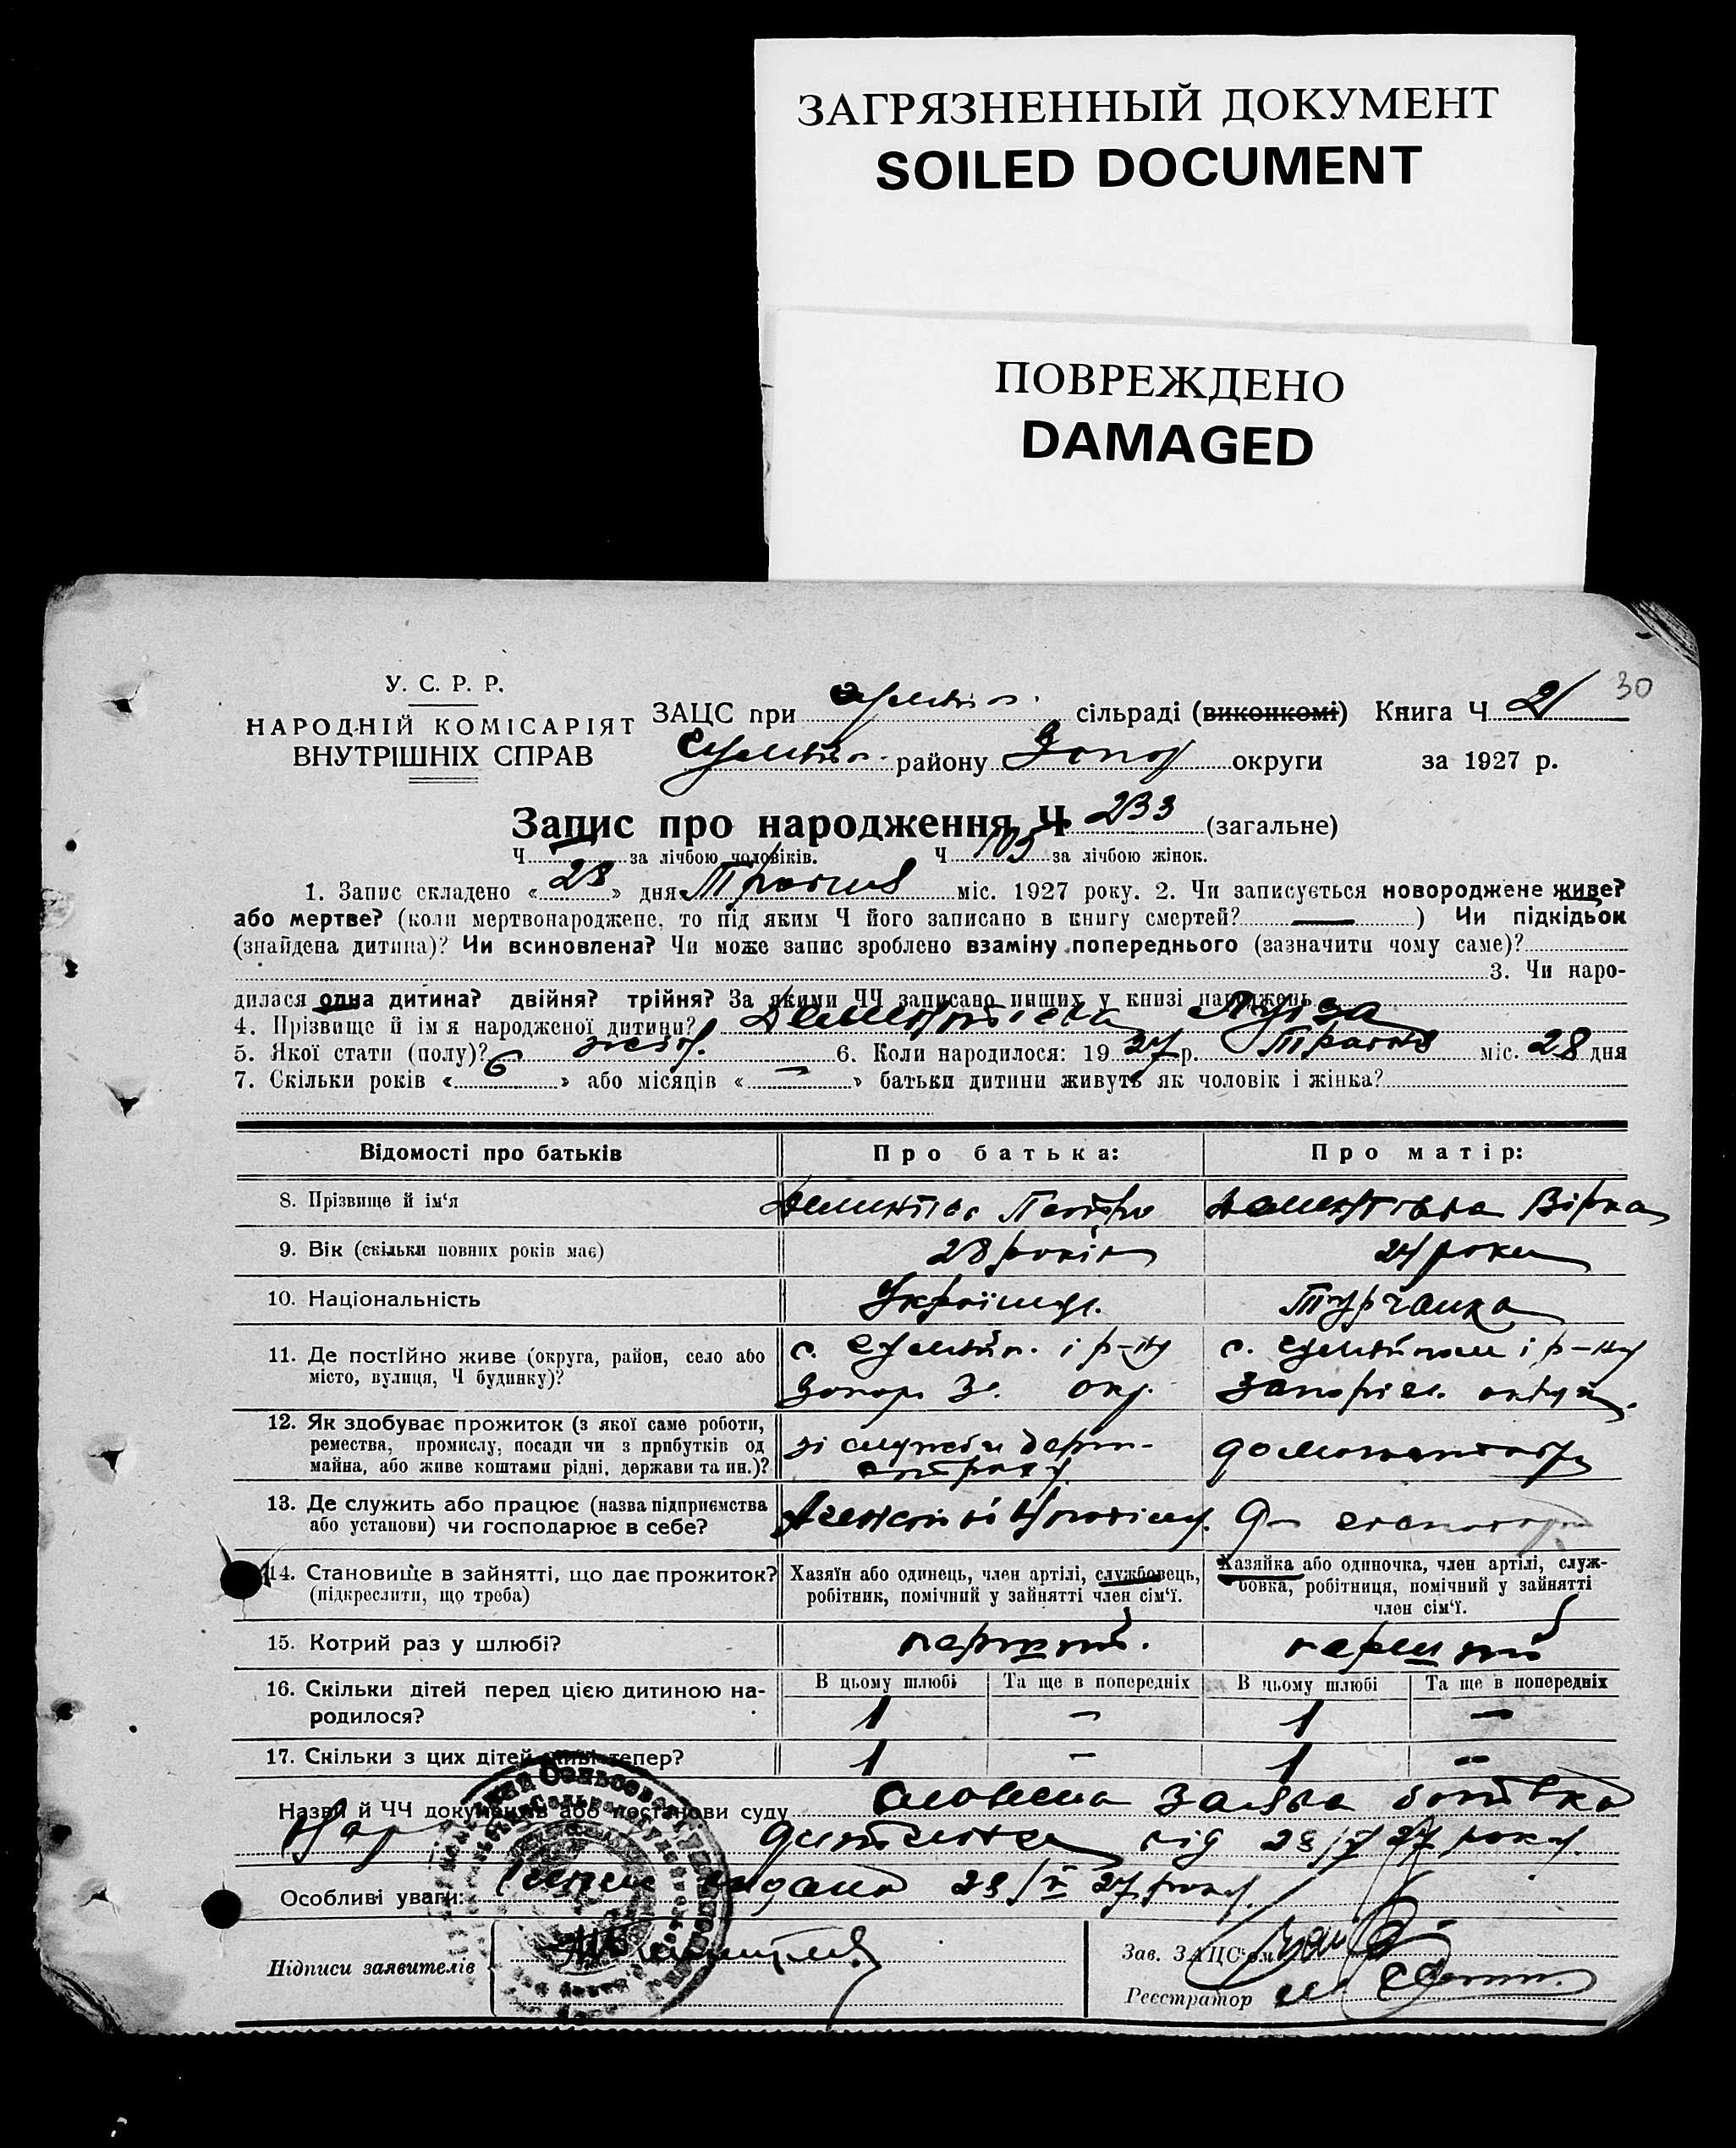 ЗАГРЯЗНЕННЫЙ ДОКУМЕНТ
SOILED DOCUMENT
ПОВРЕЖДЕНО
DAMAGED
30
У. С. Р. Р.
НАРОДНІЙ КОМІСАРІЯТ
ВНУТРІШНІХ СПРАВ
ЗАЦС при сільраді (виконкомі) Книга Ч 21
району Запор округи за 1927 р.
Запис про народження Ч 233 (загальне)
Ч за лічбою чоловіків. Ч 105 за лічбою жінок.
1. Запис складено « 28 » дня Травня міс. 1927 року. 2. Чи записується новороджене живе?
або мертве? (коли мертвонароджене, то під яким Ч його записано в книгу смертей? — ) Чи підкідьок
(знайдена дитина)? Чи всиновлена? Чи може запис зроблено взаміну попереднього (зазначити чому саме)?
3. Чи наро-
дилася одна дитина? двійня? трійня? За якими ЧЧ записано инших у книзі народжень
4. Прізвище й ім'я народженої дитини? Дементієва Луіза
5. Якої стати (полу)? жіноч. 6. Коли народилося: 19 27 р. Травня міс. 28 дня
7. Скільки років « 6 » або місяців « — » батьки дитини живуть як чоловік і жінка?
Відомості про батьків Про батька: Про матір:
8. Прізвище й ім'я Дементієв Петро Дементієва Вірка
9. Вік (скільки повних років має) 28 років 24 роки
10. Національність Українець. Турчанка
11. Де постійно живе (округа, район, село або
місто, вулиця, Ч будинку)?
с. і р-ну
окр.
с. і р-ну
округи.
12. Як здобуває прожиток (з якої саме роботи,
ремества, промислу, посади чи з прибутків од
майна, або живе коштами рідні, держави та ин.)?
зі служби Держ-
страху
домогосподар
13. Де служить або працює (назва підприємства
або установи) чи господарює в себе?
14. Становище в зайнятті, що дає прожиток?
(підкреслити, що треба)
Хазяїн або одинець, член артілі, службовець,
робітник, помічний у зайнятті член сім'ї.
Хазяйка або одиночка, член артілі, служ-
бовка, робітниця, помічний у зайнятті
член сім'ї.
15. Котрий раз у шлюбі? перший. перший
16. Скільки дітей перед цією дитиною на-
родилося?
В цьому шлюбі Та ще в попередніх В цьому шлюбі Та ще в попередніх
1 — 1 —
17. Скільки з цих дітей живі тепер? 1 — 1 —
Назви й ЧЧ документів або постанови суду словесна заява батька
від 28/V 27 року.
Особливі уваги: видано 28/V 27 року.
Підписи заявителів
Зав. ЗАЦС'ом
Реєстратор